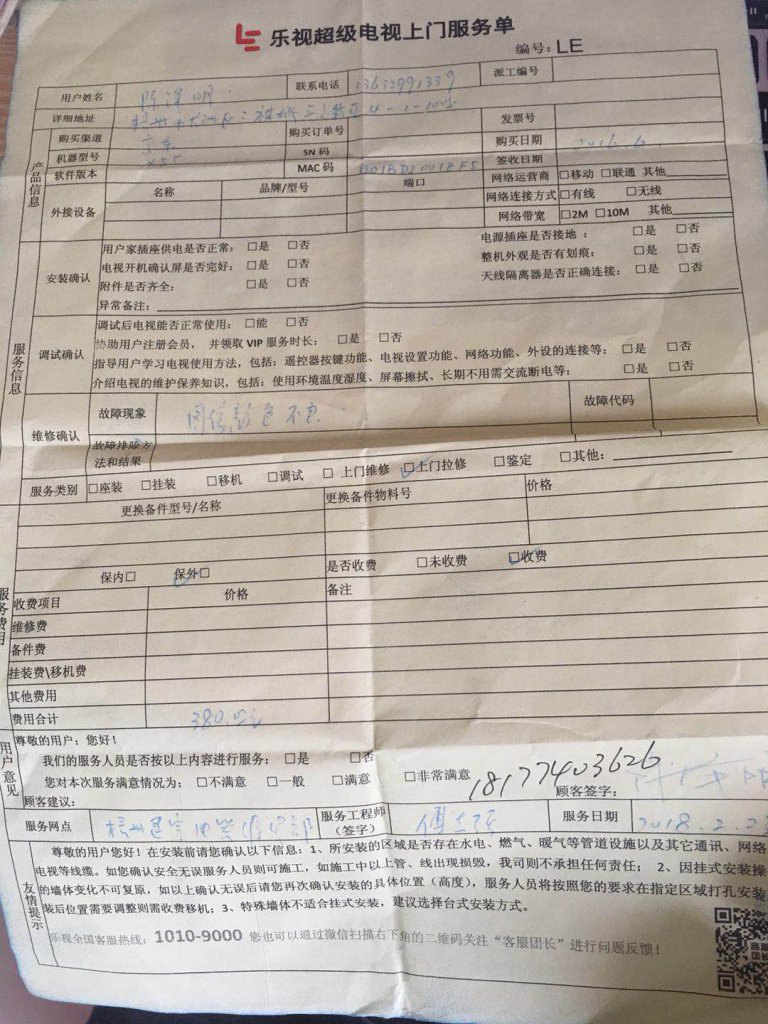 乐视超级电视上门服务单
编号：LE
用户姓名 联系电话 13632991339 派工编号
详细地址
购买渠道 京东 购买订单号 发票号
机器型号 X55 SN 码 购买日期 2016.6
软件版本 MAC 码 签收日期
产品信息
外接设备 名称 品牌/型号 端口
网络运营商 □移动 □联通 其他
网络连接方式 □有线 □无线
网络带宽 □2M □10M 其他
服务信息
安装确认
用户家插座供电是否正常： □是 □否 电源插座是否接地： □是 □否
电视开机确认屏是否完好： □是 □否 整机外观是否有划痕： □是 □否
附件是否齐全： □是 □否 天线隔离器是否正确连接： □是 □否
异常备注：
调试确认
调试后电视能否正常使用： □能 □否
协助用户注册会员， 并领取 VIP 服务时长： □是 □否
指导用户学习电视使用方法，包括：遥控器按键功能、电视设置功能、网络功能、外设的连接等： □是 □否
介绍电视的维护保养知识，包括：使用环境温度湿度、屏幕擦拭、长期不用需交流断电等： □是 □否
维修确认 故障现象 图像颜色不良 故障代码
故障排除方法和结果
服务类别 □座装 □挂装 □移机 □调试 □ 上门维修 □上门拉修 □鉴定 □其他：
服务费用
更换备件型号/名称 更换备件物料号 价格
保内□ 保外□ 是否收费 □未收费 □收费
收费项目 价格 备注
维修费
备件费
挂装费\移机费
其他费用
费用合计 380.元
用户意见
尊敬的用户：您好！
我们的服务人员是否按以上内容进行服务： □是 □否
您对本次服务满意情况为： □不满意 □一般 □满意 □非常满意 18177403626
顾客建议： 顾客签字：
服务网点 服务工程师（签字） 服务日期 2018.2.23
友情提示
尊敬的用户您好！在安装前请您确认以下信息：1、所安装的区域是否存在水电、燃气、暖气等管道设施以及其它通讯、网络
电视等线缆。如您确认安全无误服务人员则可施工，如施工中以上管、线出现损毁，我司则不承担任何责任； 2、因挂式安装操
的墙体变化不可复原，如以上确认无误后请您再次确认安装的具体位置（高度），服务人员将按照您的要求在指定区域打孔安
装后位置需要调整则需收费移机；3、特殊墙体不适合挂式安装，建议选择台式安装方式。
乐视全国客服热线：1010-9000 您也可以通过微信扫描右下角的二维码关注“客服团长”进行问题反馈！